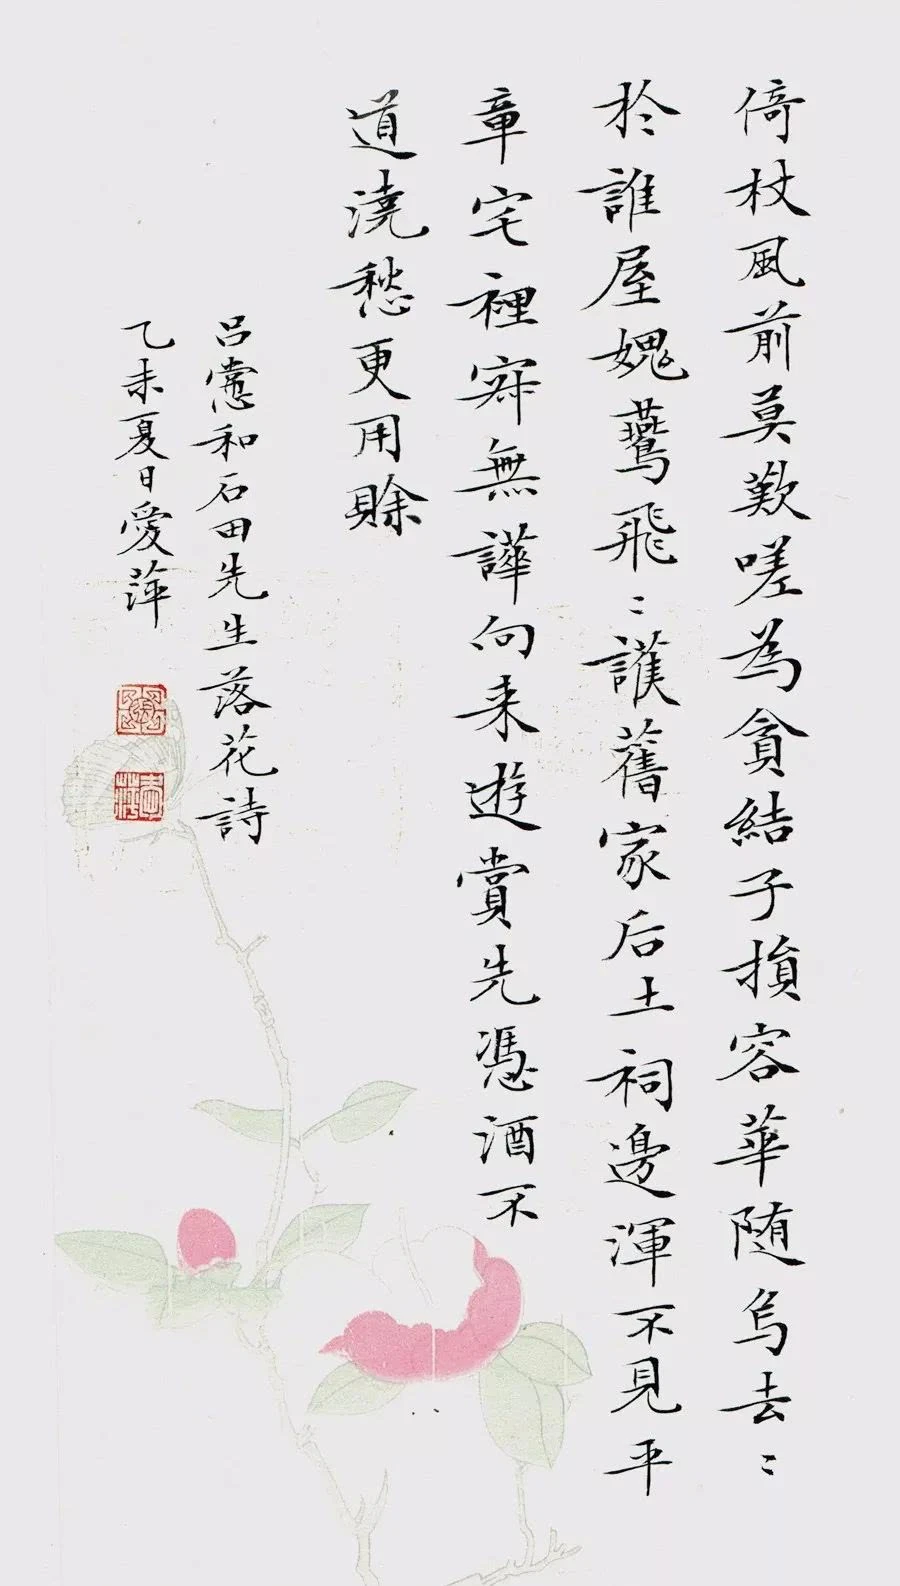 倚杖風前莫歎嗟為貪結子損容華隨烏去〻
於誰屋媿鷰飛〻護舊家后土祠邊渾不見平
章宅裡寂無譁向来遊賞先憑酒不
道澆愁更用賒
呂㦂和石田先生落花詩
乙未夏日愛萍